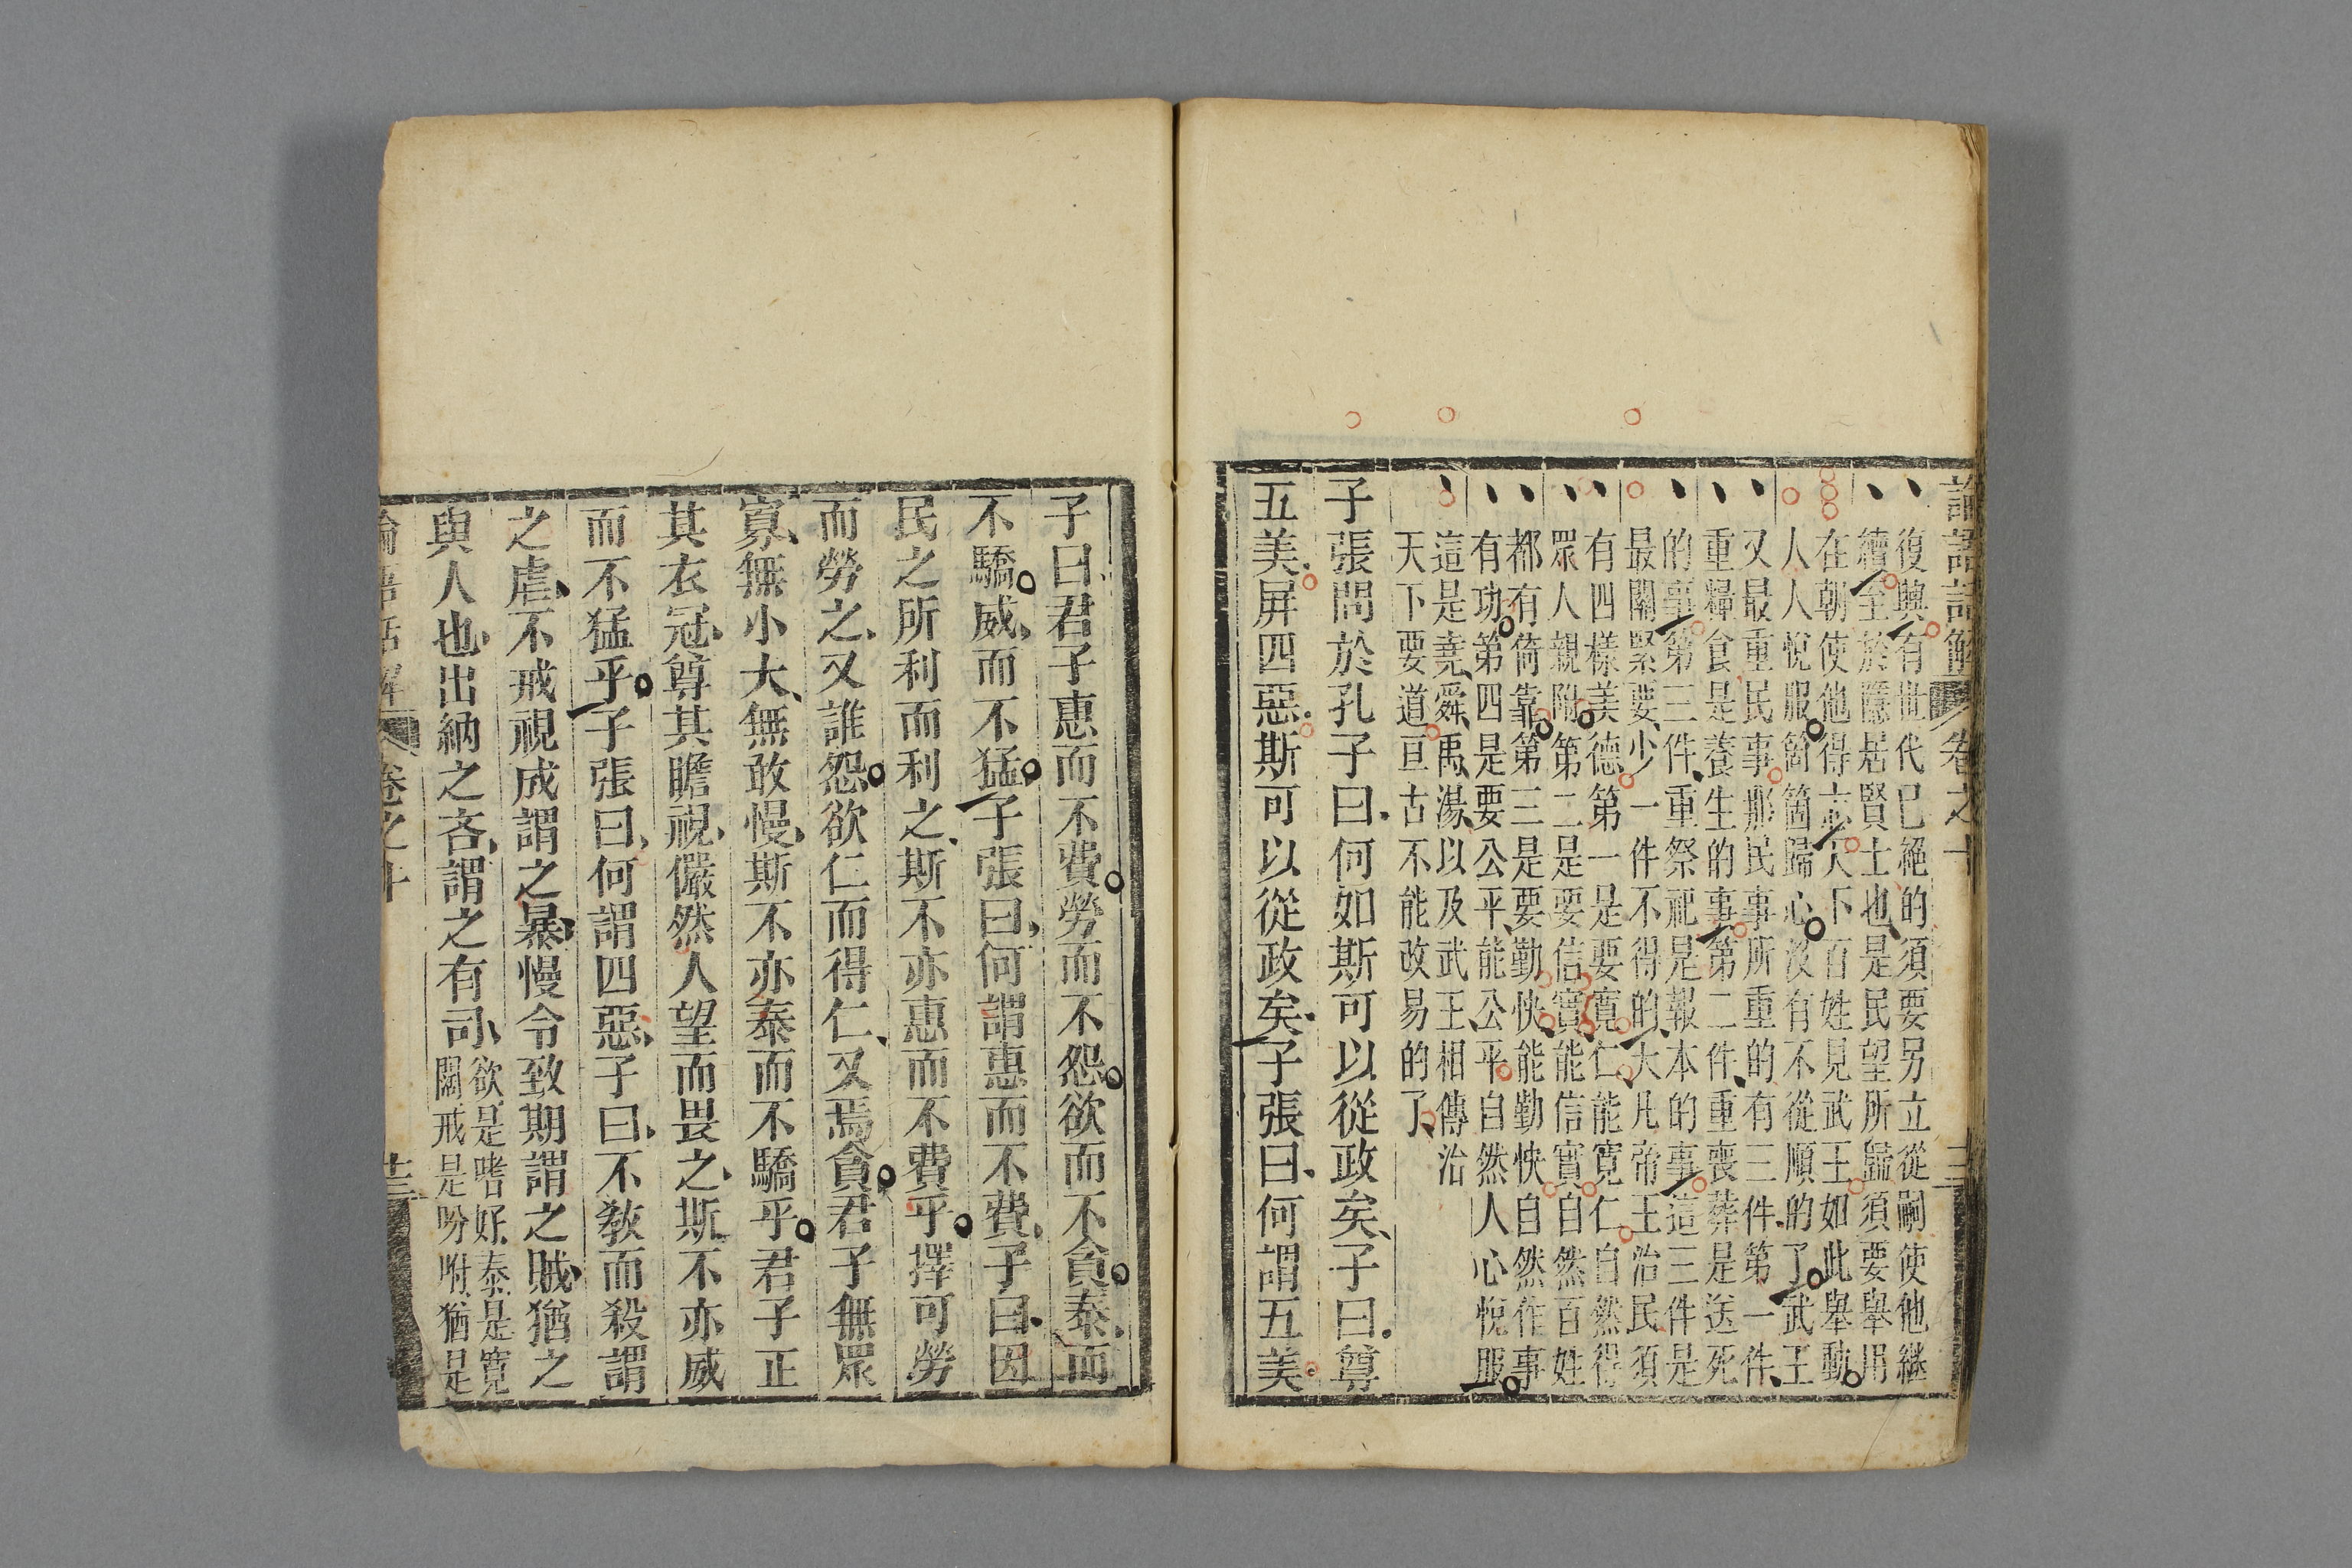 論語話解 卷之十 三
復興有世代已絕的須要另立從嗣使他繼
續至於隱居賢士也是民望所歸須要舉用
在朝使他得志天下百姓見武王如此舉動
人人悅服箇箇歸心沒有不從順的了武王
又最重民事那民事所重的有三件第一件
重糧食是養生的事第二件重喪葬是送死
的事第三件重祭祀是報本的事這三件是
最關緊要少一件不得的大凡帝王治民須
有四樣美德第一是要寬仁能寬仁自然得
眾人親附第二是要信實能信實自然百姓
都有倚靠第三是要勤快能勤快自然作事
有功第四是要公平能公平自然人心悅服
這是堯舜禹湯以及武王相傳治
天下要道亘古不能改易的了
子張問於孔子曰何如斯可以從政矣子曰尊
五美屏四惡斯可以從政矣子張曰何謂五美
子曰君子惠而不費勞而不怨欲而不貪泰而
不驕威而不猛子張曰何謂惠而不費子曰因
民之所利而利之斯不亦惠而不費乎擇可勞
而勞之又誰怨欲仁而得仁又焉貪君子無眾
寡無小大無敢慢斯不亦泰而不驕乎君子正
其衣冠尊其瞻視儼然人望而畏之斯不亦威
而不猛乎子張曰何謂四惡子曰不教而殺謂
之虐不戒視成謂之暴慢令致期謂之賊猶之
與人也出納之吝謂之有司欲是嗜好泰是寬
闊戒是吩咐猶是
論語話解 卷之十